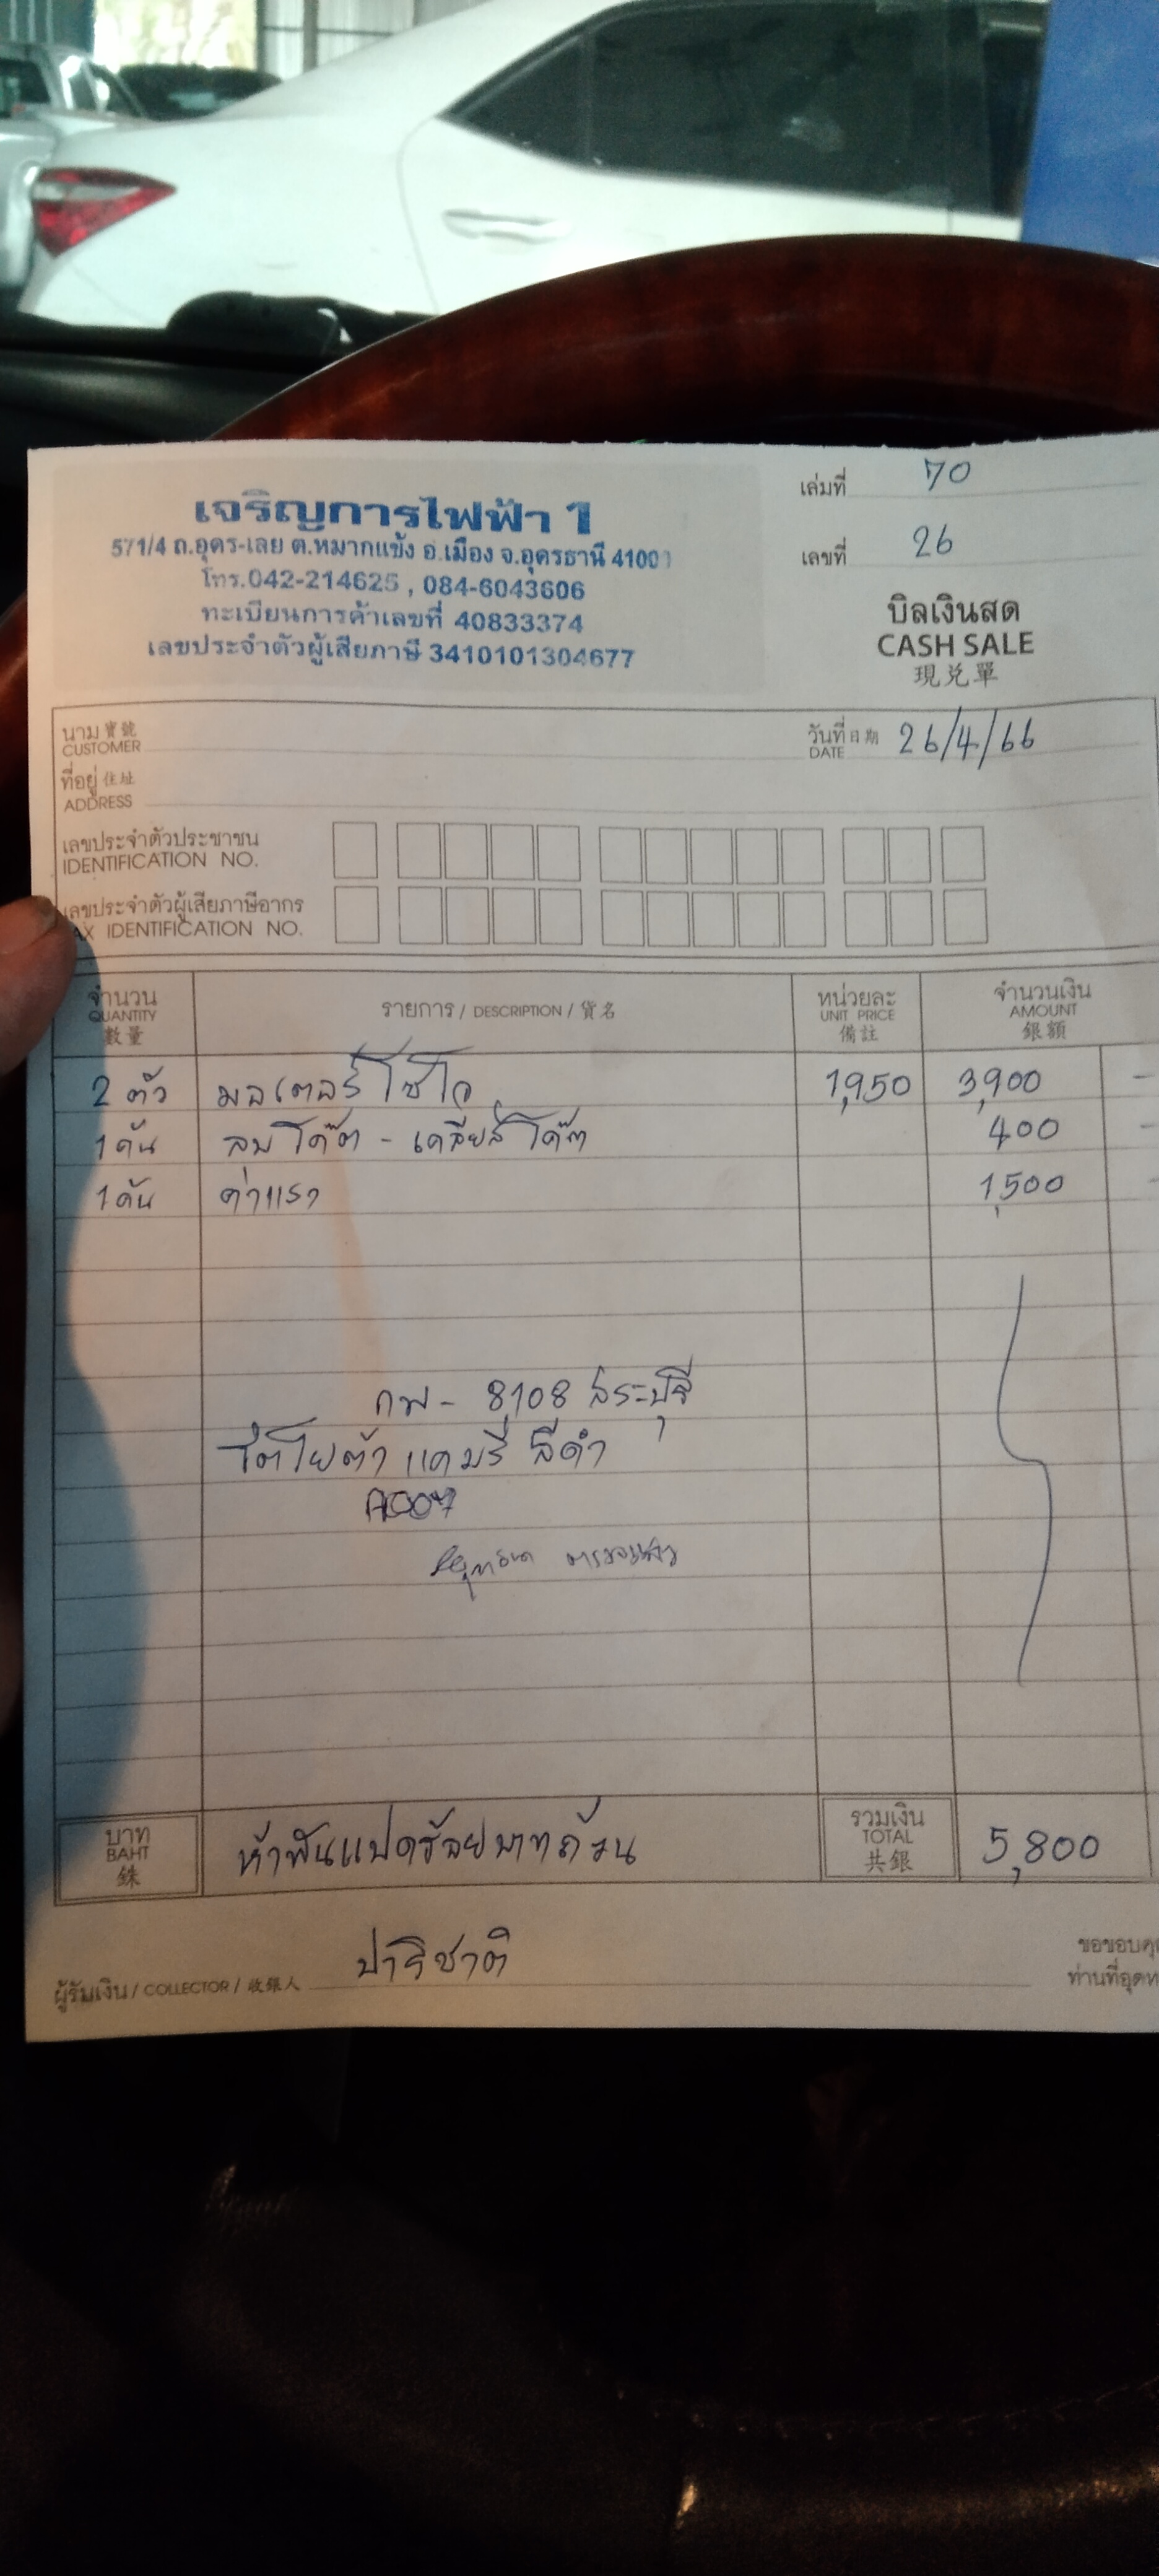 เจริญการไฟฟ้า 1
571/4 ถ.อุดร-เลย ต.หมากแข้ง อ.เมือง จ.อุดรธานี 41000
โทร.042-214625 , 084-6043606
ทะเบียนการค้าเลขที่ 40833374
เลขประจำตัวผู้เสียภาษี 3410101304677
เล่มที่ 70
เลขที่ 26
บิลเงินสด
CASH SALE
現兌單
นาม 寶號
CUSTOMER
วันที่ 日期 26/4/66
DATE
ที่อยู่ 住址
ADDRESS
เลขประจำตัวประชาชน
IDENTIFICATION NO.
เลขประจำตัวผู้เสียภาษีอากร
TAX IDENTIFICATION NO.
จำนวน
QUANTITY
數量
รายการ / DESCRIPTION / 貨名
หน่วยละ
UNIT PRICE
備註
จำนวนเงิน
AMOUNT
銀額
2 ตัว มอเตอร์โซโว 1,950 3,900 -
1 คัน ลบโค๊ต - เคลียส์โค๊ต 400 -
1 คัน ค่าแรง 1,500 -
กพ - 8108 สระบุรี
โตโยต้า แคมรี่ สีดำ
บาท
BAHT
銖
ห้าพันแปดร้อยบาทถ้วน
รวมเงิน
TOTAL
共銀
5,800
ผู้รับเงิน / COLLECTOR / 收銀人 ปาริชาติ
ขอขอบคุ
ท่านที่อุดห